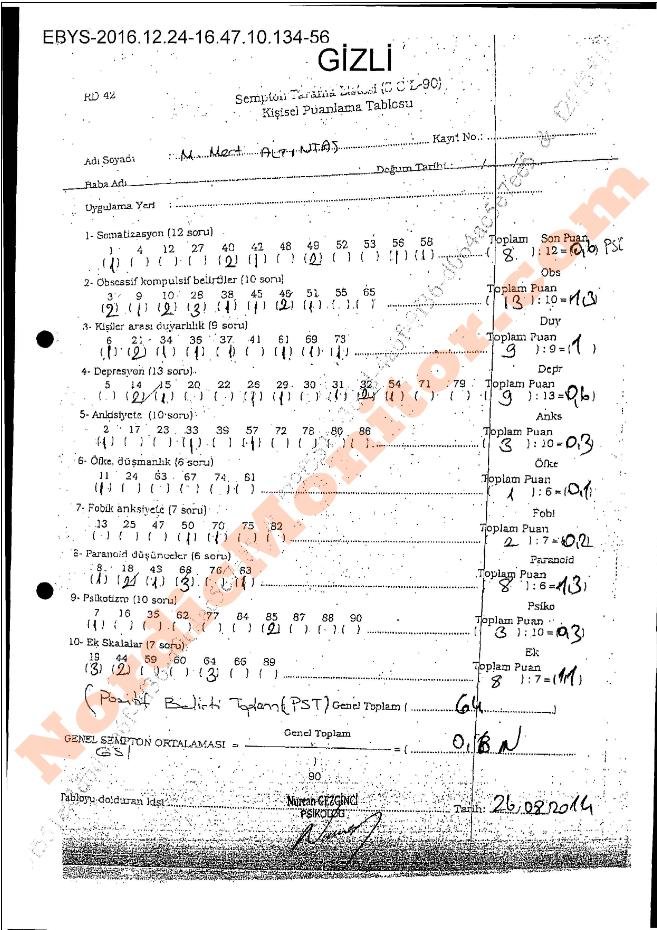 EBYS-2016.12.24-16.47.10.134-56
GİZLİ
RD 42
Semptom Tarama Listesi (SCL-90)
Kişisel Puanlama Tablosu
Adı Soyadı M. Mert ALTINTAŞ Kayıt No.:
Baba Adı Doğum Tarihi : / /
Uygulama Yeri
1- Somatizasyon (12 soru) Toplam Son Puan
1 4 12 27 40 42 48 49 52 53 56 58
(1) ( ) ( ) ( ) (2) (1) ( ) (2) ( ) ( ) (1) (1) ( 8 ) : 12 = 0,6 PSİ
2- Obsessif kompulsif belirtiler (10 soru) Obs
3 9 10 28 38 45 46 51 55 65 Toplam Puan
(2) (1) (2) (3) (1) (1) (2) (1) ( ) ( ) ( 13 ) : 10 = 1,3
3- Kişiler arası duyarlılık (9 soru) Duy
6 21 34 36 37 41 61 69 73 Toplam Puan
(1) (2) (1) (1) (1) ( ) (1) (1) (1) ( 9 ) : 9 = ( 1 )
4- Depresyon (13 soru) Depr
5 14 15 20 22 26 29 30 31 32 54 71 79 Toplam Puan
( 9 ) : 13 = 0,6
5- Anksiyete (10 soru) Anks
2 17 23 33 39 57 72 78 80 86 Toplam Puan
(1) ( ) ( ) (1) ( ) (1) ( ) ( ) ( ) ( ) ( 3 ) : 10 = 0,3
6- Öfke, düşmanlık (6 soru) Öfke
11 24 63 67 74 81 Toplam Puan
(1) ( ) ( ) ( ) ( ) ( ) ( 1 ) : 6 = (0,1
7- Fobik anksiyete (7 soru) Fobi
13 25 47 50 70 75 82 Toplam Puan
( ) ( ) ( ) (1) (1) ( ) ( ) ( 2 ) : 7 = 0,2
8- Paranoid düşünceler (6 soru) Paranoid
8 18 43 68 76 83 Toplam Puan
(1) (2) (1) (3) ( ) (1) ( 8 ) : 6 = 1,3)
9- Psikotizm (10 soru) Psiko
7 16 35 62 77 84 85 87 88 90 Toplam Puan
(1) ( ) ( ) ( ) ( ) ( ) (2) ( ) ( ) ( ) ( 3 ) : 10 = 0,3
10- Ek Skalalar (7 soru) Ek
19 44 59 60 64 66 89 Toplam Puan
(3) (2) ( ) ( ) (3) ( ) ( ) ( 8 ) : 7 = (1,1)
(Pozitif Belirti Toplam(PST) Genel Toplam ( 64 )
Genel Toplam
GENEL SEMPTON ORTALAMASI = = (
GSI
90
Tabloyu dolduran kişi Nurcan GEZGİNCİ Tarih: 26.08.2014
PSİKOLOG
NordicMonitor.com